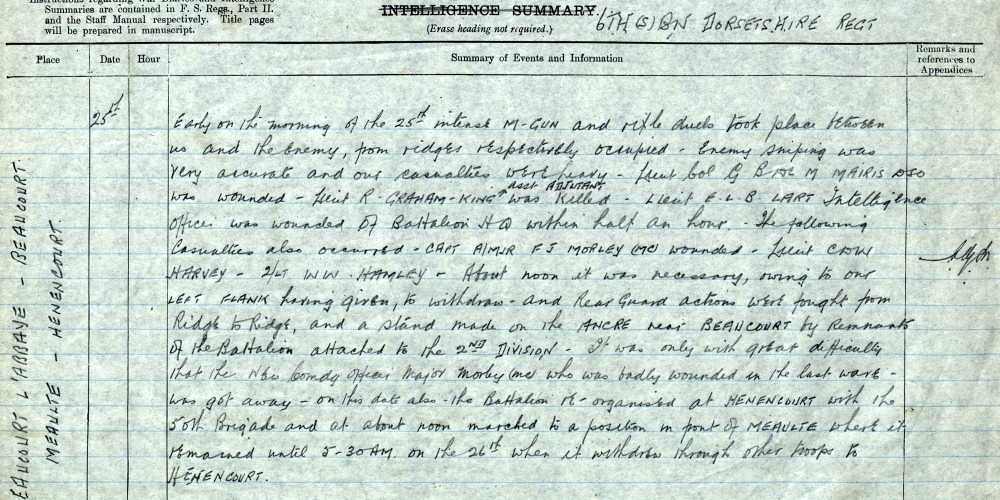 Instructions regarding War Diaries and Intelligence
Summaries are contained in F. S. Regs., Part II.
and the Staff Manual respectively. Title pages
will be prepared in manuscript.
INTELLIGENCE SUMMARY.
(Erase heading not required.)
6TH (S) BN DORSETSHIRE REGT
Place
Date
Hour
Summary of Events and Information
Remarks and
references to
Appendices
EAUCOURT L'ABBAYE - BEAUCOURT.
MEAULTE - HENENCOURT.
25th
Early on the morning of the 25th intense M-GUN and rifle duels took place between
us and the Enemy, from ridges respectively occupied - Enemy sniping was
very accurate and our casualties were heavy - Lieut Col G B de M MAIRIS DSO
was wounded - Lieut R - GRAHAM-KING asst ADJUTANT was killed - Lieut E.L.B. LART Intelligence
officer was wounded of Battalion HQ within half an hour. The following
Casualties also occurred - CAPT A/MJR FJ MORLEY (MC) wounded - Lieut
HARVEY - 2/LT W.W. HAMLEY - About noon it was necessary, owing to our
LEFT FLANK having given, to withdraw - and Rear Guard actions were fought from
Ridge to Ridge, and a stand made on the ANCRE near BEAUCOURT by Remnants
of the Battalion attached to the 2ND DIVISION - It was only with great difficulty
that the New Comdg officer Major Morley (mc) who was badly wounded in the last wave -
was got away - on this date also - the Battalion re-organised at HENENCOURT with the
50th Brigade and at about noon marched to a position in front of MEAULTE where it
remained until 5-30AM. on the 26th when it withdrew through other troops to
HENENCOURT.